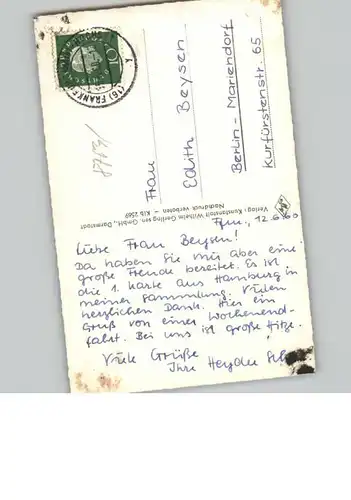 Ffm., 12.6.60
Liebe Frau Beysen!
Da haben Sie mir aber eine
große Freude bereitet. Es ist
die 1. Karte aus Hamburg in
meiner Sammlung. Vielen
herzlichen Dank. Hier ein
Gruß von einer Wochenend-
fahrt. Bei uns ist große Hitze.
Viele Grüße
Ihre Heydu
Verlag: Kunstanstalt Wilhelm Gerling sen. GmbH., Darmstadt
Nachdruck verboten - Klb 2568
Frau
Edith Beysen
Berlin - Mariendorf
Kurfürstenstr. 65
(16) FRANKF
10